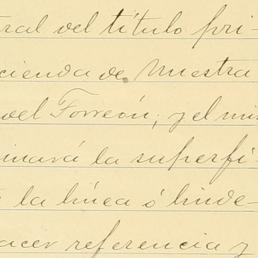 ral del título pri-
cienda de Nuestra
del Torreón, y el mis
inará la superfi-
la línea ó linde-
acer referencia y